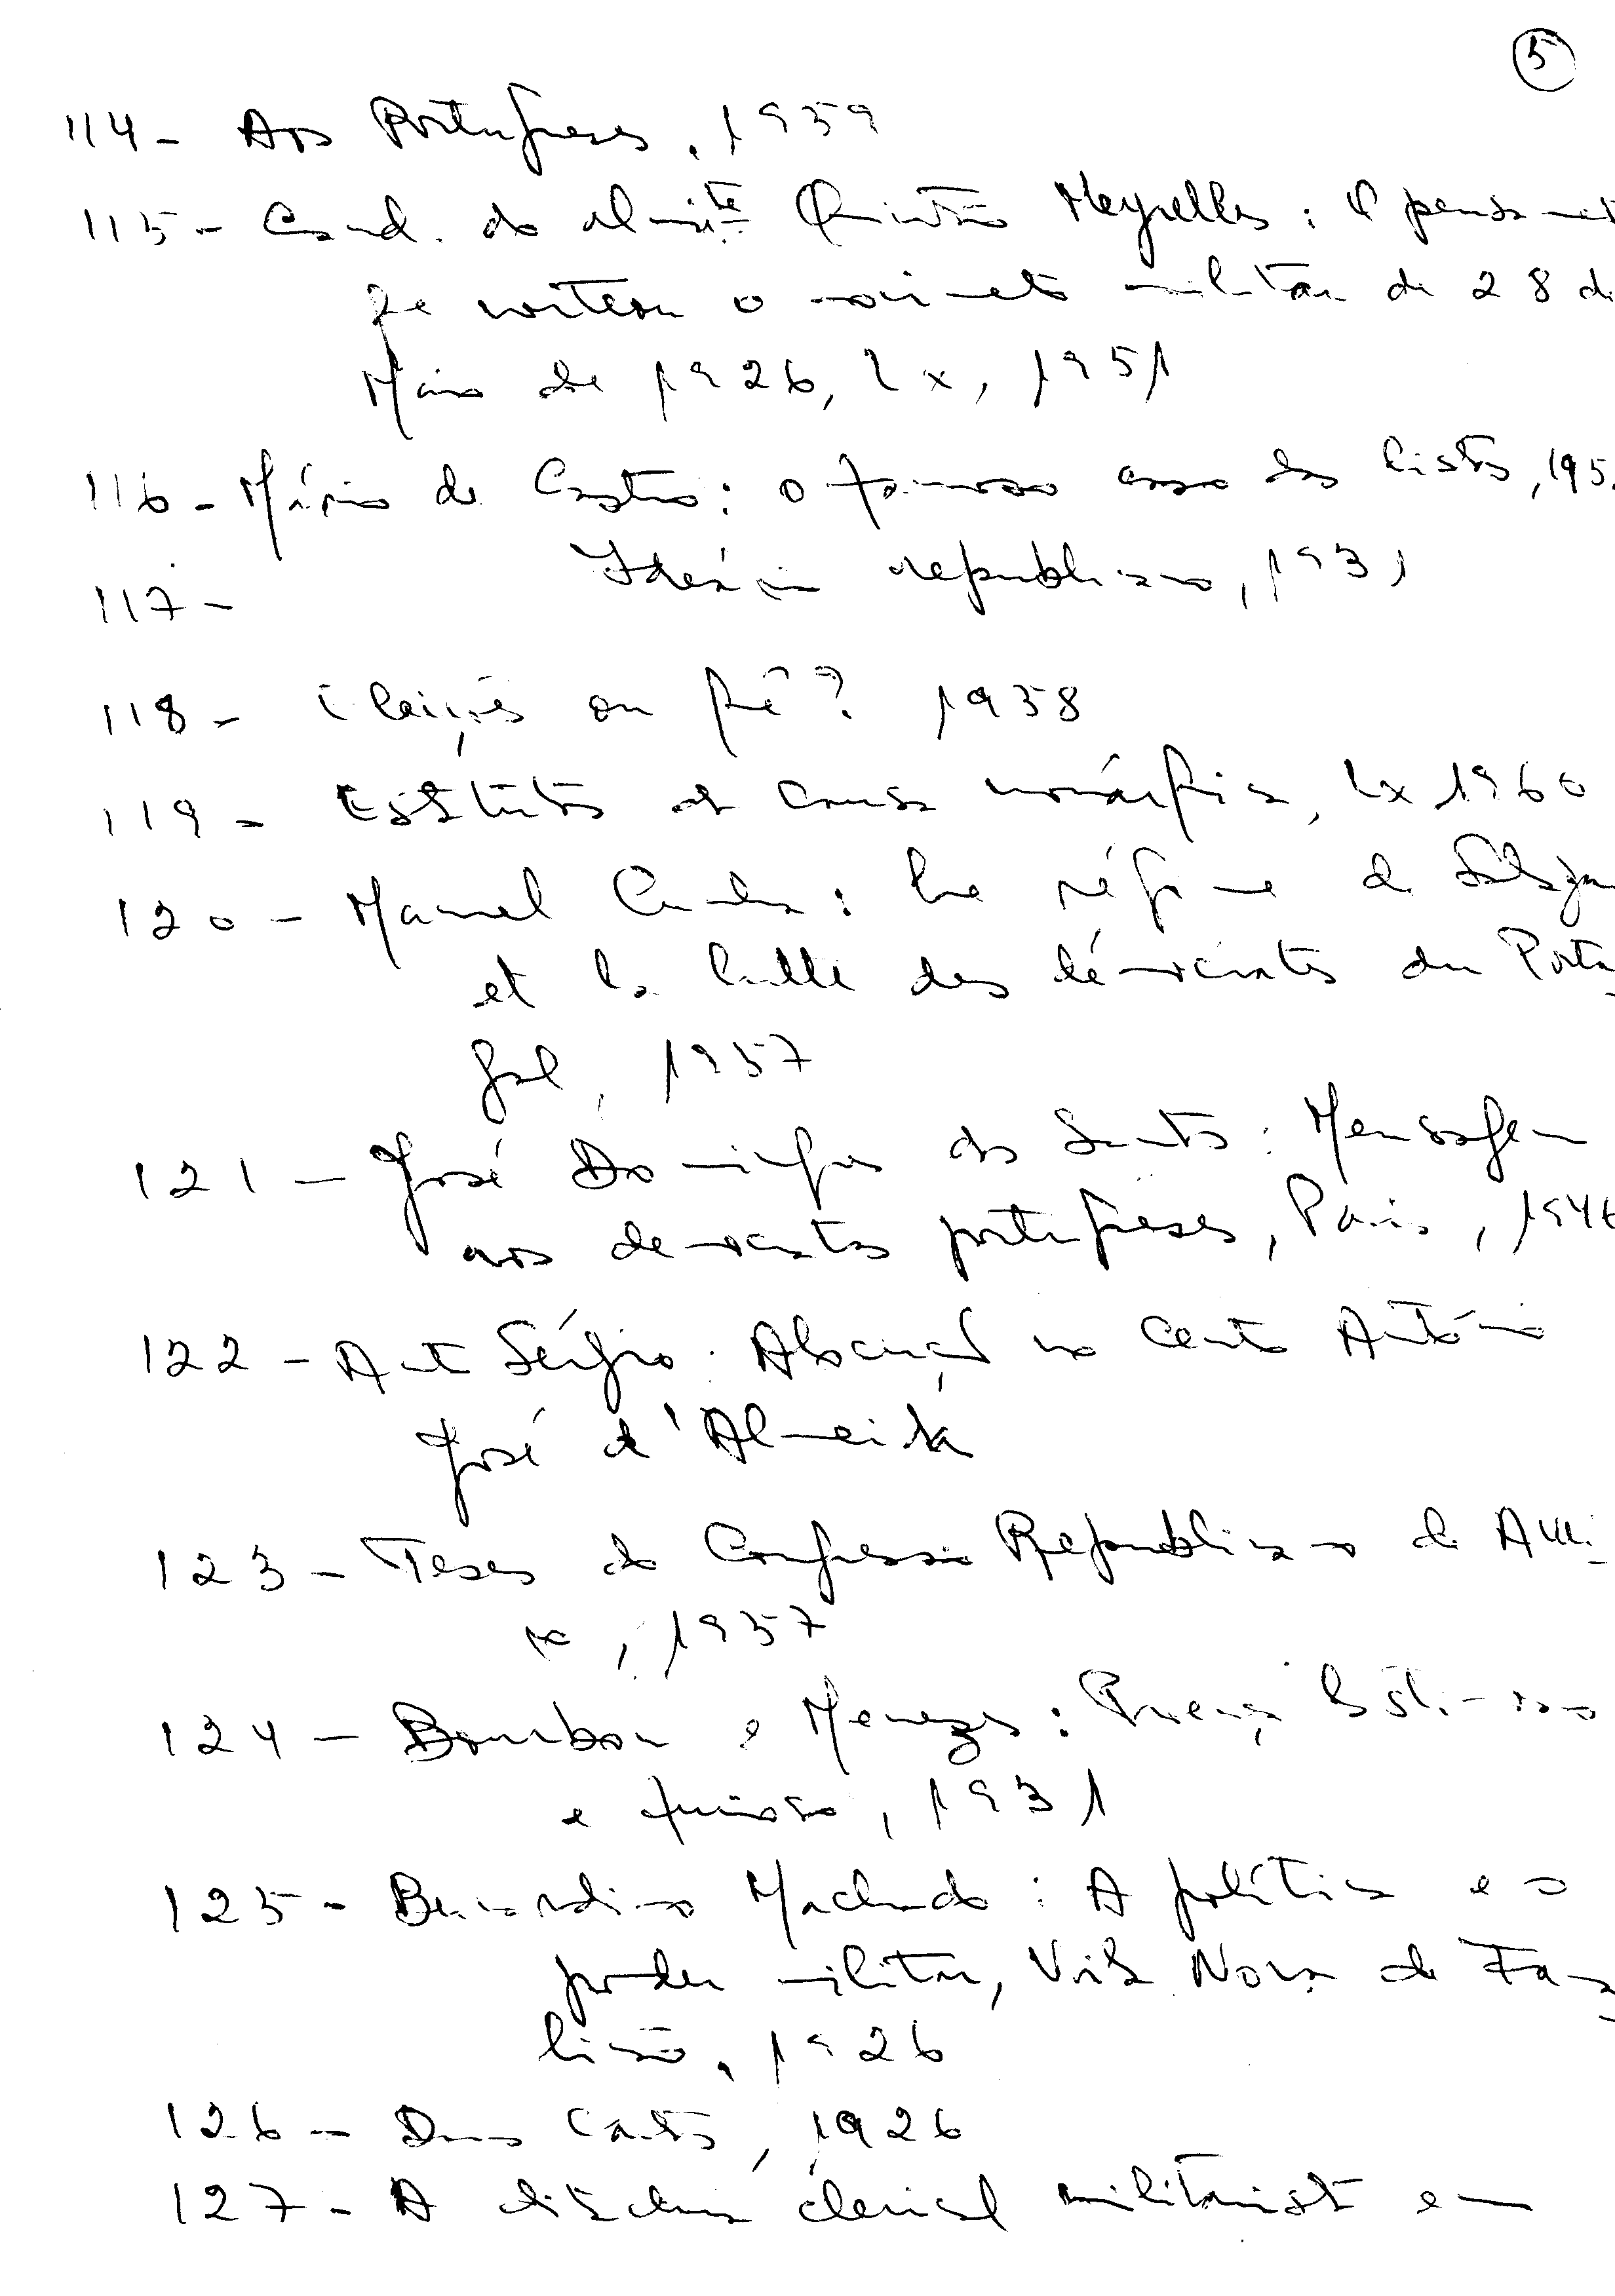 5
114 - Aos Portugueses, 1959
115 - Cand. do almirte Quintão Meyrelles : O pensamet
que norteou o movimeto militar de 28 de
Maio de 1926, Lx, 1951
116 - Mário de Castro : o famoso caso das listas, 195
117 - Ideário republicano, 1931
118 - Eleições ou quê ? 1958
119 - Estatutos da Causa monárquica, Lx 1960
120 - Manuel Cunha : Le régime de Salazar
et la lutte des démocrates du Portu-
gal, 1957
121 - José Domingues dos Santos : Mensagem
aos democratas portugueses, Paris, 194
122 - Ant Sérgio : Alocução no Centro António
José d'Almeida
123 - Teses do Congresso Republicano de Avei-
ro, 1957
124 - Bourbon e Menezes : Proença
e furioso, 1931
125 - Bernardino Machado : A política e o
poder militar, Vila Nova de Fama-
licão, 1926
126 - Duas Cartas, 1926
127 - A ditadura clerical militarista em